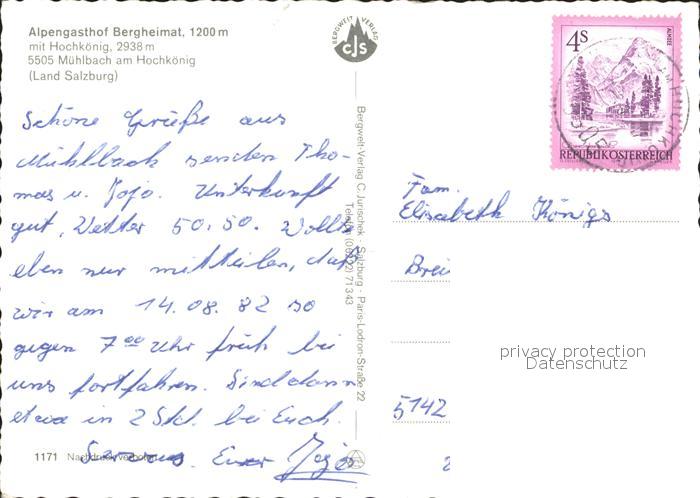 Alpengasthof Bergheimat, 1200 m
mit Hochkönig, 2938 m
5505 Mühlbach am Hochkönig
(Land Salzburg)
BERGWELT VERLAG
CJS
4 S
ALMSEE
REPUBLIK ÖSTERREICH
Schöne Grüße aus
Mühlbach senden Tho-
mas u. Jojo. Unterkunft
gut, Wetter 50:50. Wollte
eben nur mitteilen, daß
wir am 14.08.82 so
gegen 7 00 Uhr früh bei
uns fortfahren. Sind dann
etwa in 2 Std. bei Euch.
Servus Euer
1171 Nachdruck verboten
Bergwelt-Verlag C. Jurischek · Salzburg · Paris-Lodron-Straße 22
Telefon (06222) 71343
Fam.
Elisabeth Königs
Brei
5142
privacy protection
Datenschutz